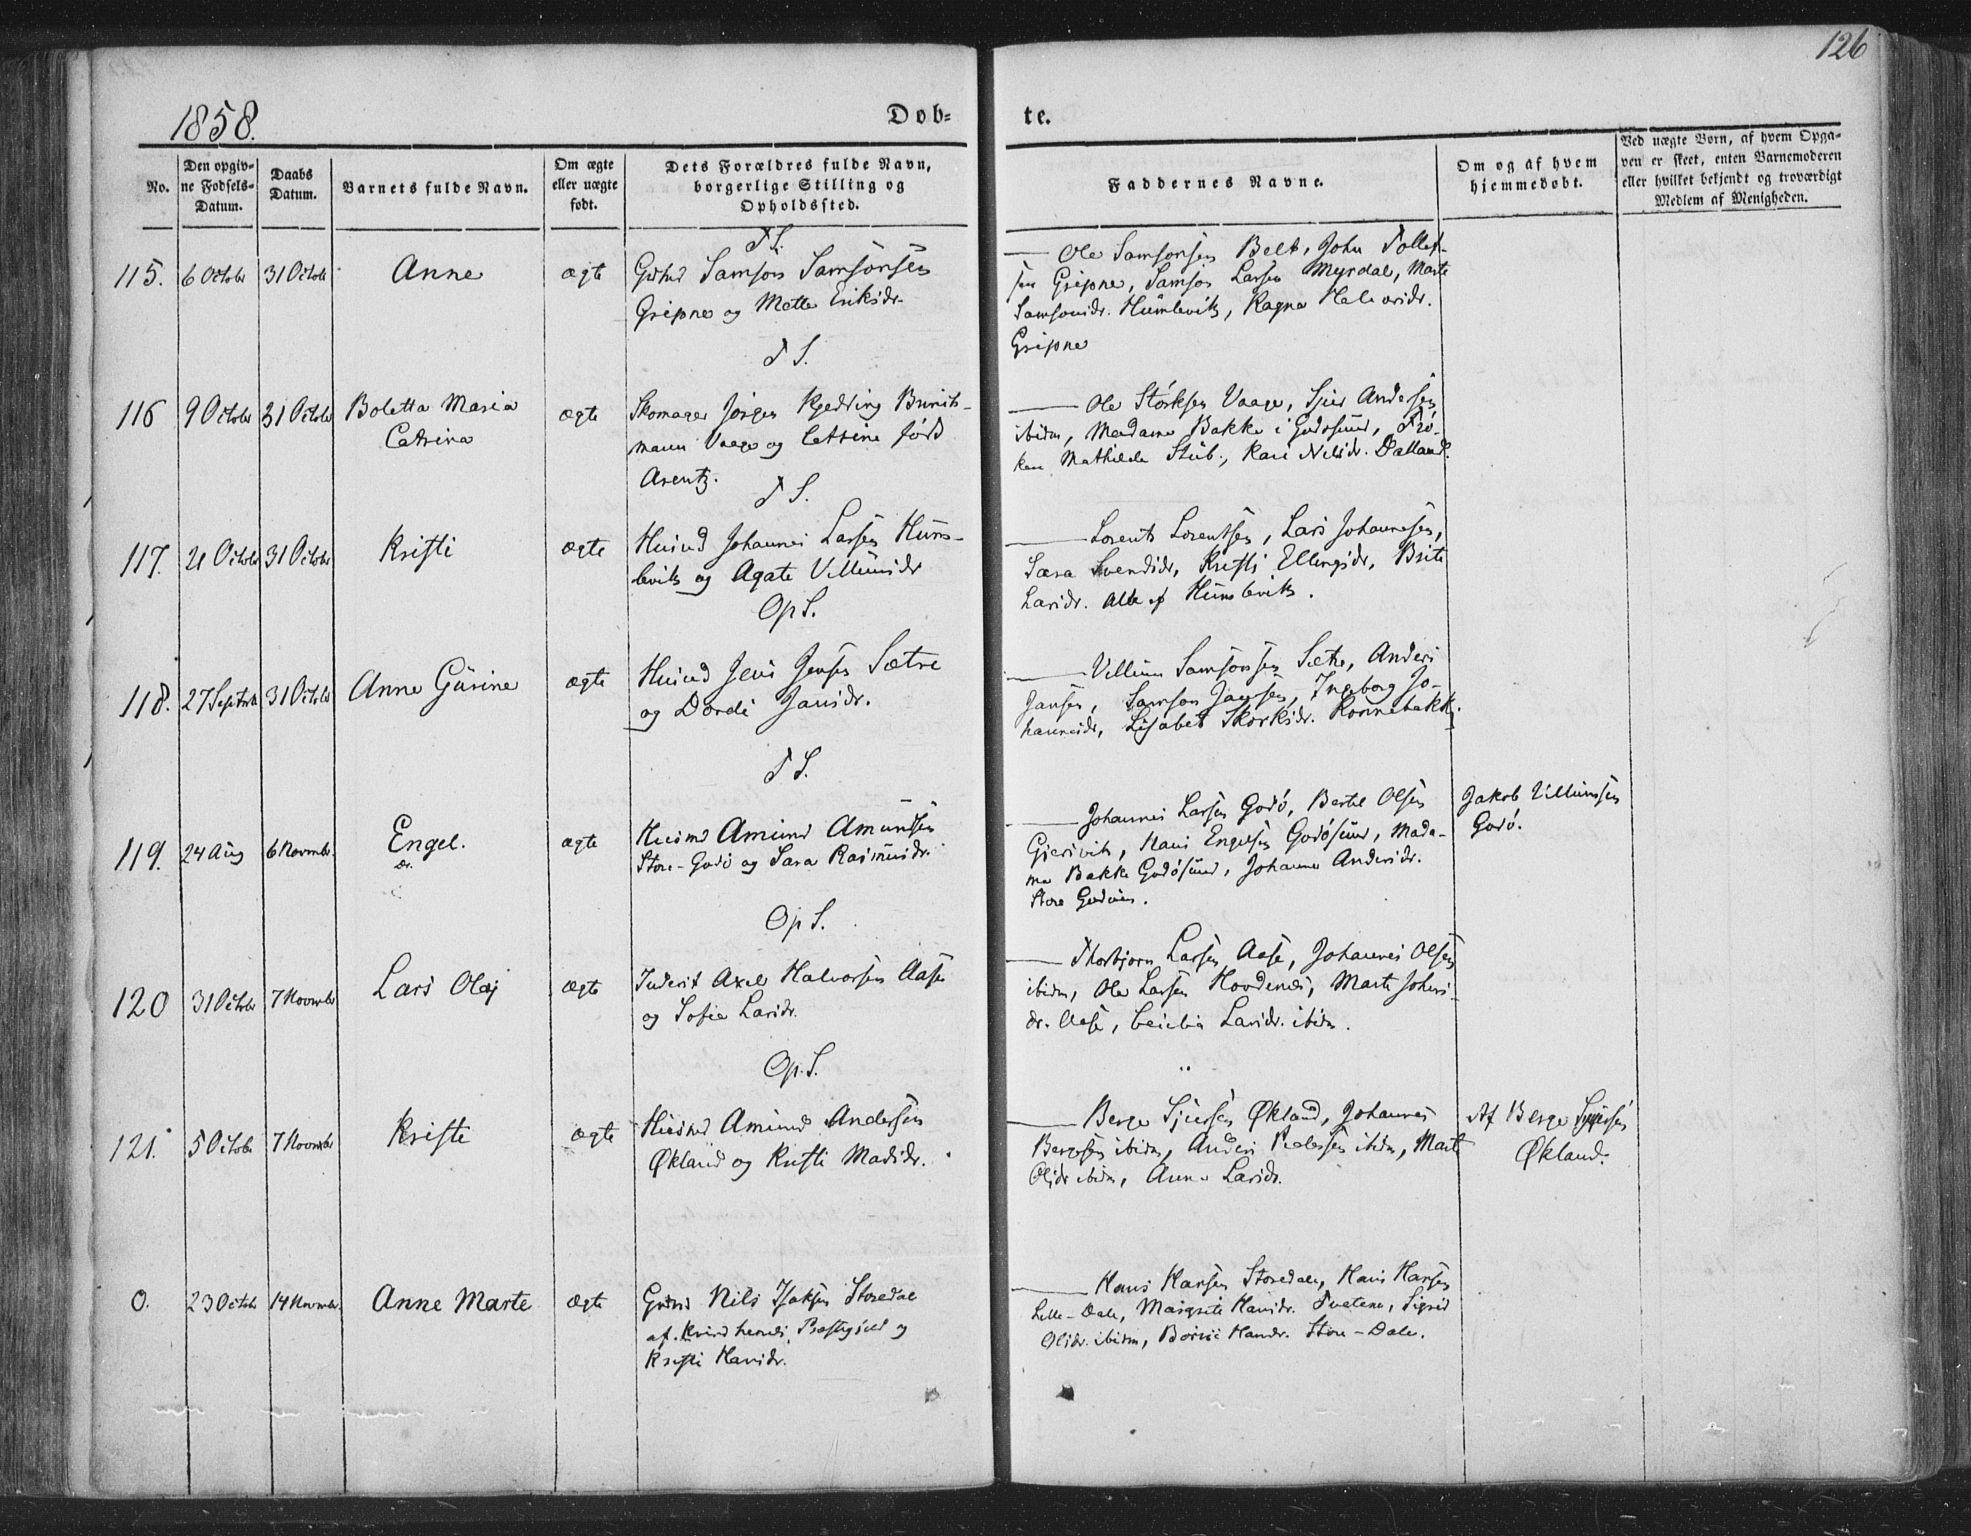 126
1858.
Døb-
te.
No.
Den opgiv-
ne Fødsels-
Datum.
Daabs
Datum.
Barnets fulde Navn.
Om ægte
eller uægte
født.
Dets Forældres fulde Navn,
borgerlige Stilling og
Opholdssted.
Faddernes Navne.
Om og af hvem
hjemmedøbt.
Ved uægte Børn, af hvem Opga-
ven er skeet, enten Barnemoderen
eller hvilket bekjendt og troværdigt
Medlem af Menigheden.
T S.
115. 6 Octobr 31 Octobr Anne ægte
Samson Samsonsen
Gripne og Mette Eriksdr.
Ole Samsonsen Belt, John Tollef-
sen Gripne, Samson Larsen Myrdal, Marte
Samsonsdr. Humlevik, Ragna Halvorsdr.
Gripne
T S.
116 9 Octobr 31 Octobr Boletta Maria
Catrina
ægte
Skomager Jørgen Kjedring
mann Vaage og Catrine
Arentz.
Ole Størksen Vaage, Sjur Andersen
ibidm, Madame Bakke i Godøsund, Frø-
ken Mathilde Stub., Kari Nilsdr. Dalland.
T S.
117. 21 Octobr 31 Octobr Kristi ægte
Huusmd Johannes Larsen Hum-
levik og Agate Villumsdr
Lorents Lorentsen, Lars Johannesen,
Sara Svendsdr, Kristi Ellingsdr, Brite
Larsdr. Alle af Humlevik.
Op S.
118. 27 Septbr 31 Octobr Anne Gurine ægte
Huusmd Jens Jensen Sætre
og Dordi Jansdr.
Villum Samsonsen Sætre, Anders
Jansen, Samson Jansen, Ingeborg Jo-
hannesdr, Lisabet Størksdr. Rønnebakk.
T S.
119. 24 Aug 6 Novmbr. Engel. ægte
Dr.
Huusmd Amund Amundsen
Store-Godø og Sara Rasmusdr.
Johannes Larsen Godø, Bertel Olsen
Gjersvik, Hans Engelsen Godøsund, Mada-
me Bakke Godøsund, Johanna Andersdr.
Store Godøen.
Jakob Villumsen
Godø.
Op S.
120 31 Octobr 7 Novmbr Lars Olaj ægte
Inderst Axel Halvorsen Aase
og Sofie Larsdr.
Thorbjørn Larsen Aase, Johannes Olsen
ibidm, Ole Larsen Hovdenes, Marte Johns-
dr. Aase, Larsdr. ibidm.
Op. S.
121. 5 Octobr 7 Novmbr Kriste ægte
Huusmd Amund Andersen
Økland og Kristi Madsdr.
Berge Sjursen Økland, Johannes
Bergesen ibidm, Anders Pedersen ibidm, Marte
Olsdr ibidm, Anna Larsdr.
Af Berge Sjursen
Økland.
0. 23 Octobr 14 Novmbr. Anne Marte ægte
Nils Isaksen Storedal
af Kvindherreds Præstegjeld og
Kristi Hansdr.
Hans Hansen Storedalen, Hans Hansen
Lille-Dale, Margrete Hansdr. Tveteno, Sigrid
Olsdr. ibidm, Hansdr. Store-Dale.